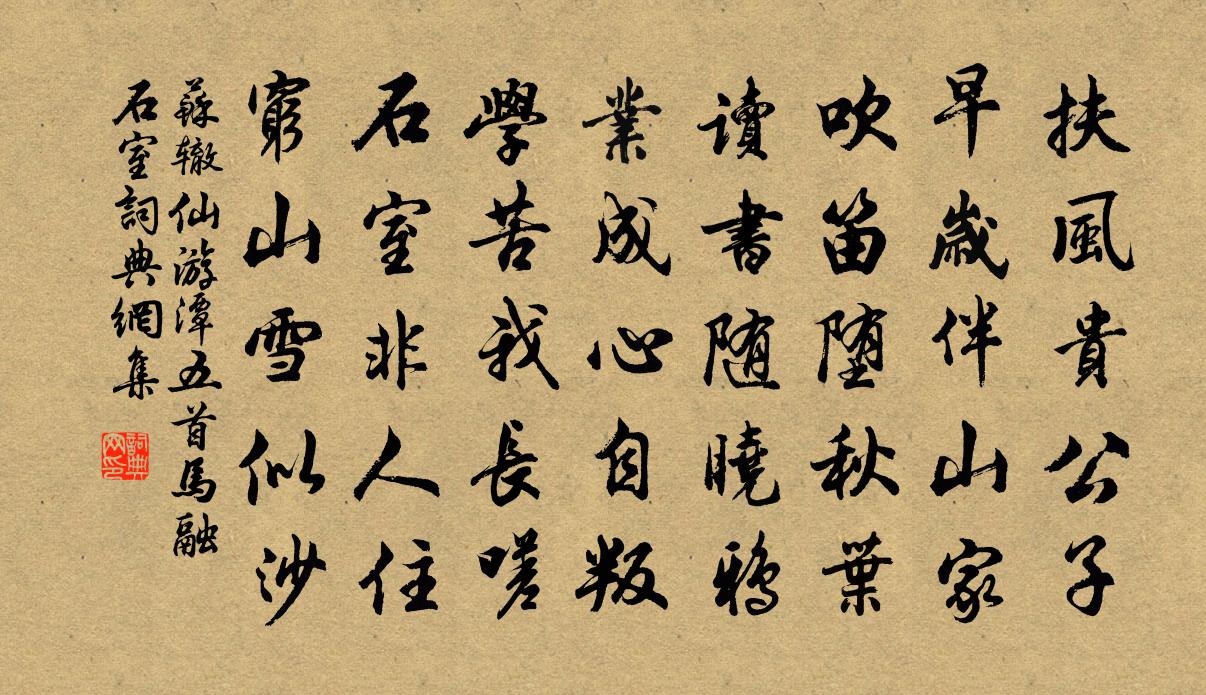 扶風貴公子
早歲伴山家
吹笛堕秋葉
讀書随曉鴉
業成心自叛
學苦我長嗟
石室非人住
窮山雪似沙
蘇辙仙游潭五首馬融
石室詞典網集
詞典
网印